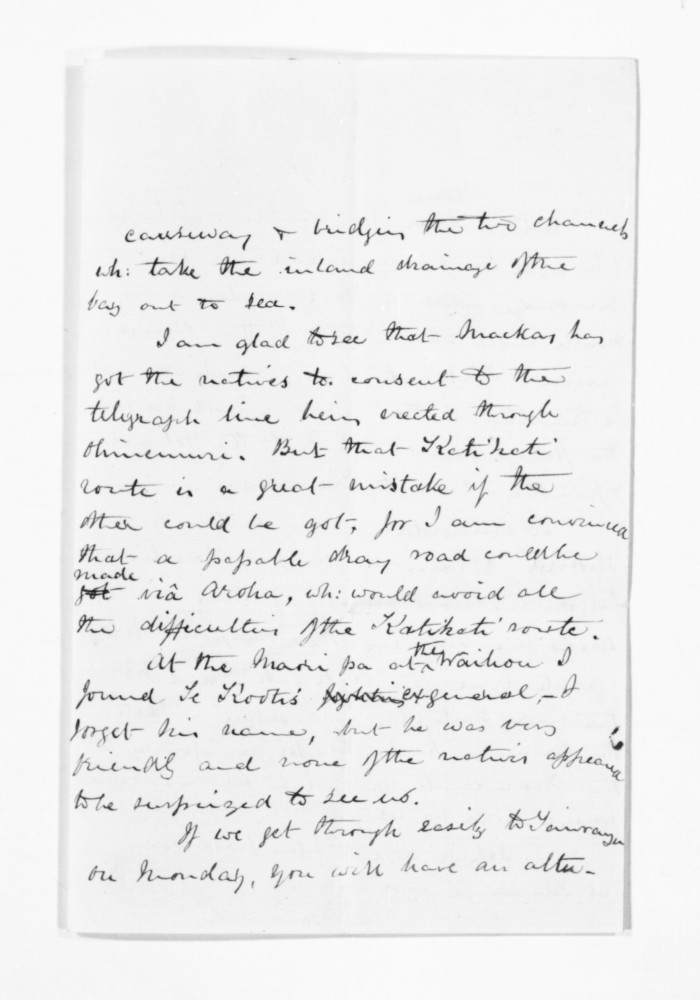 causeway & bridging the two channels
wh: take the inland drainage of the
bay out to sea.
I am glad to see that Mackay has
got the natives to consent to the
telegraph line being erected through
Ohinemuri. But that Kati'kati'
route is a great mistake if the
other could be got, for I am convinced
that a passable dray road could be
made
got viâ Aroha, wh: would avoid all
the difficulties of the Katikati' route.
At the Maori pa at the Waihou I
found Te Kooti's ex general, - I
forget his name, but he was very
friendly and none of the natives appeared
to be surprized to see us.
If we get through easily to Tauranga
on Monday, you will have an alter-